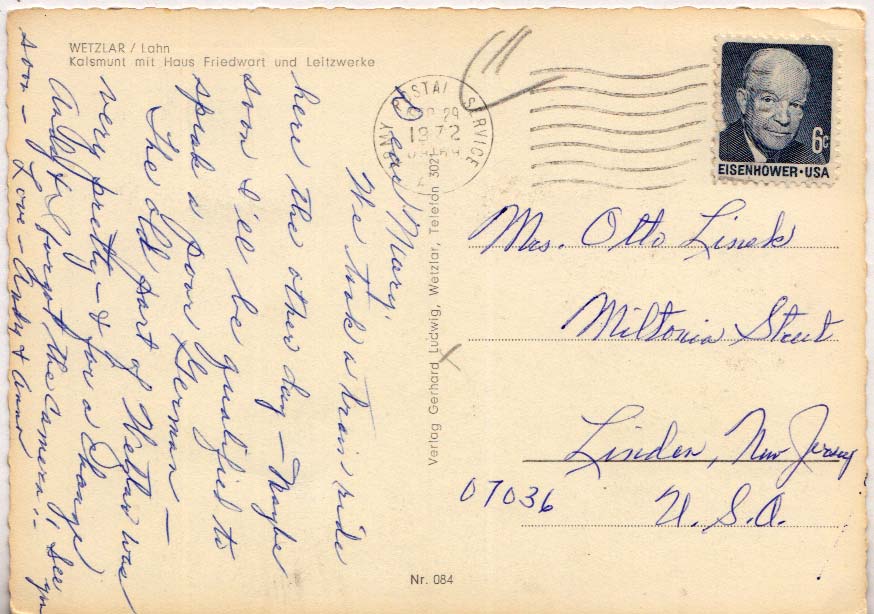 WETZLAR / Lahn
Kalsmunt mit Haus Friedwart und Leitzwerke
Dear Mary,
We took a train ride
here the other day – Maybe
soon I'll be qualified to
speak a poor German –
The old part of Wetzlar was
very pretty – & for a change
Andy forgot the camera!! See you
soon – Love – Andy & Anna
Verlag Gerhard Ludwig, Wetzlar, Telefon 3021
ARMY POSTAL SERVICE
29
1972
6c
EISENHOWER·USA
Mrs. Otto Linek
Miltonia Street
Linden, New Jersey
07036
U.S.A.
Nr. 084